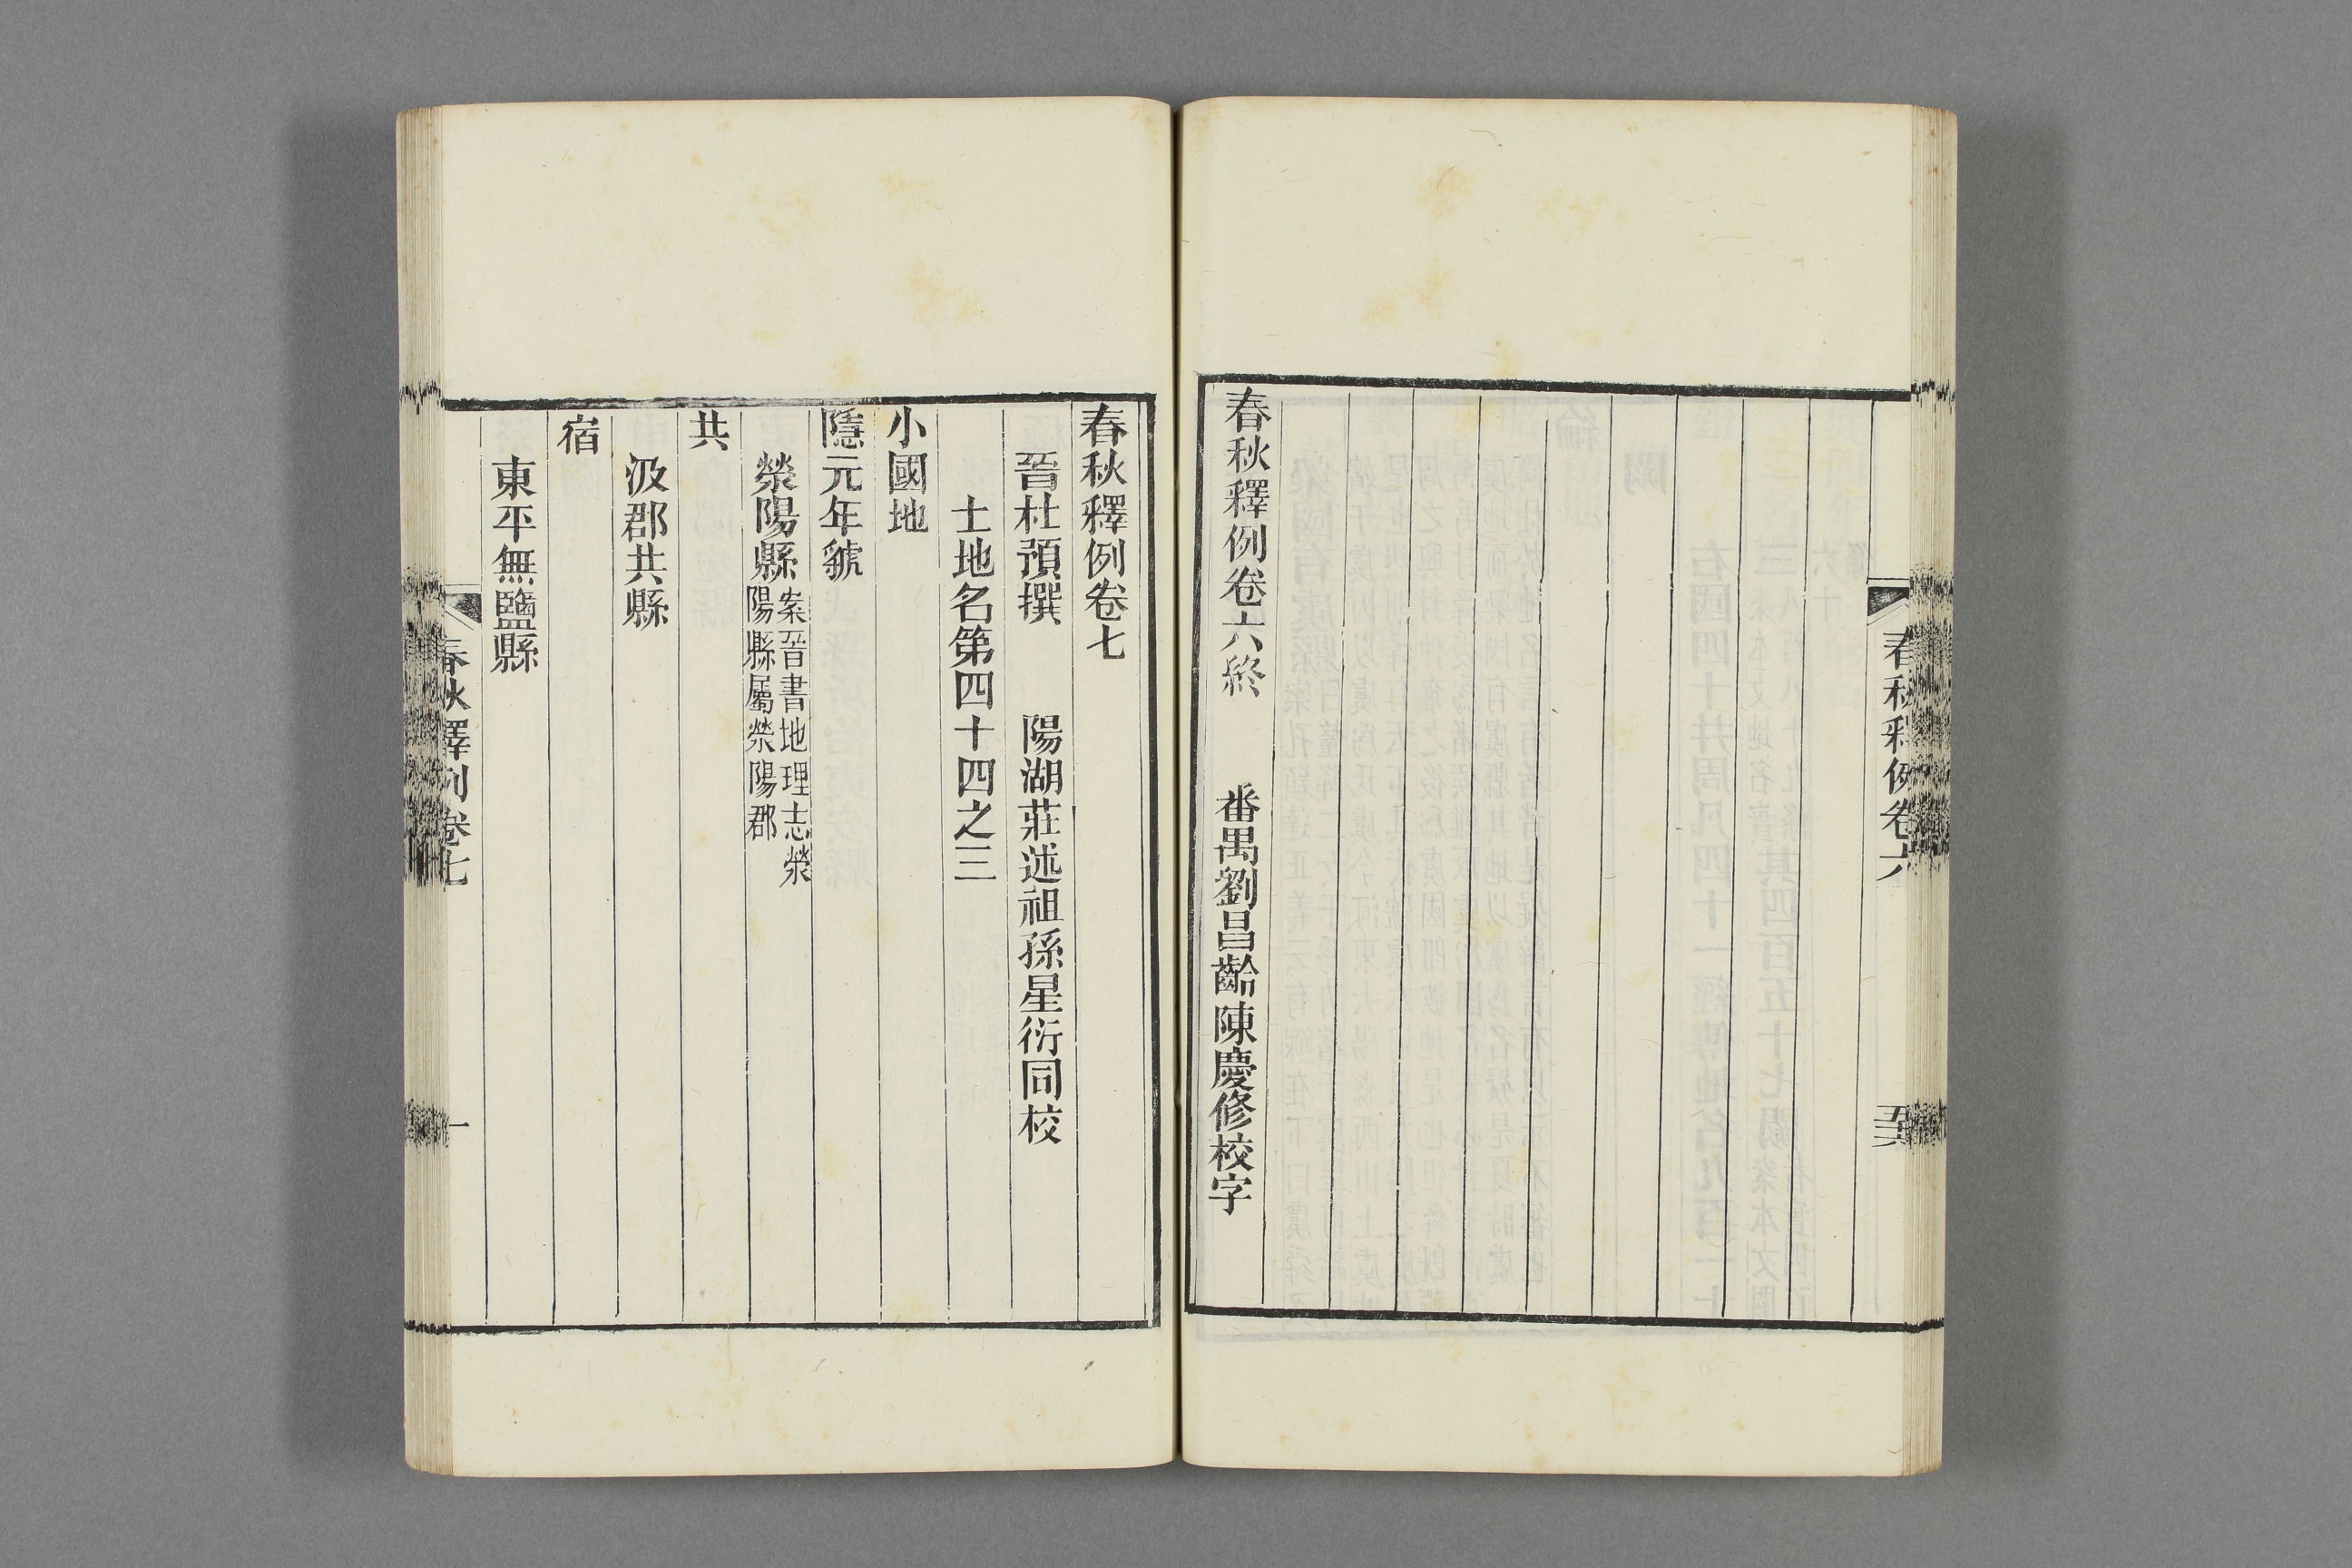 春秋釋例卷六
春秋釋例卷六終　　番禺劉昌齡陳慶修校字
春秋釋例卷七
晉杜預撰　　陽湖莊述祖孫星衍同校
土地名第四十四之三
小國地
隱元年虢
滎陽縣案晉書地理志滎
陽縣屬滎陽郡
共
汲郡共縣
宿
東平無鹽縣
春秋釋例卷七
一